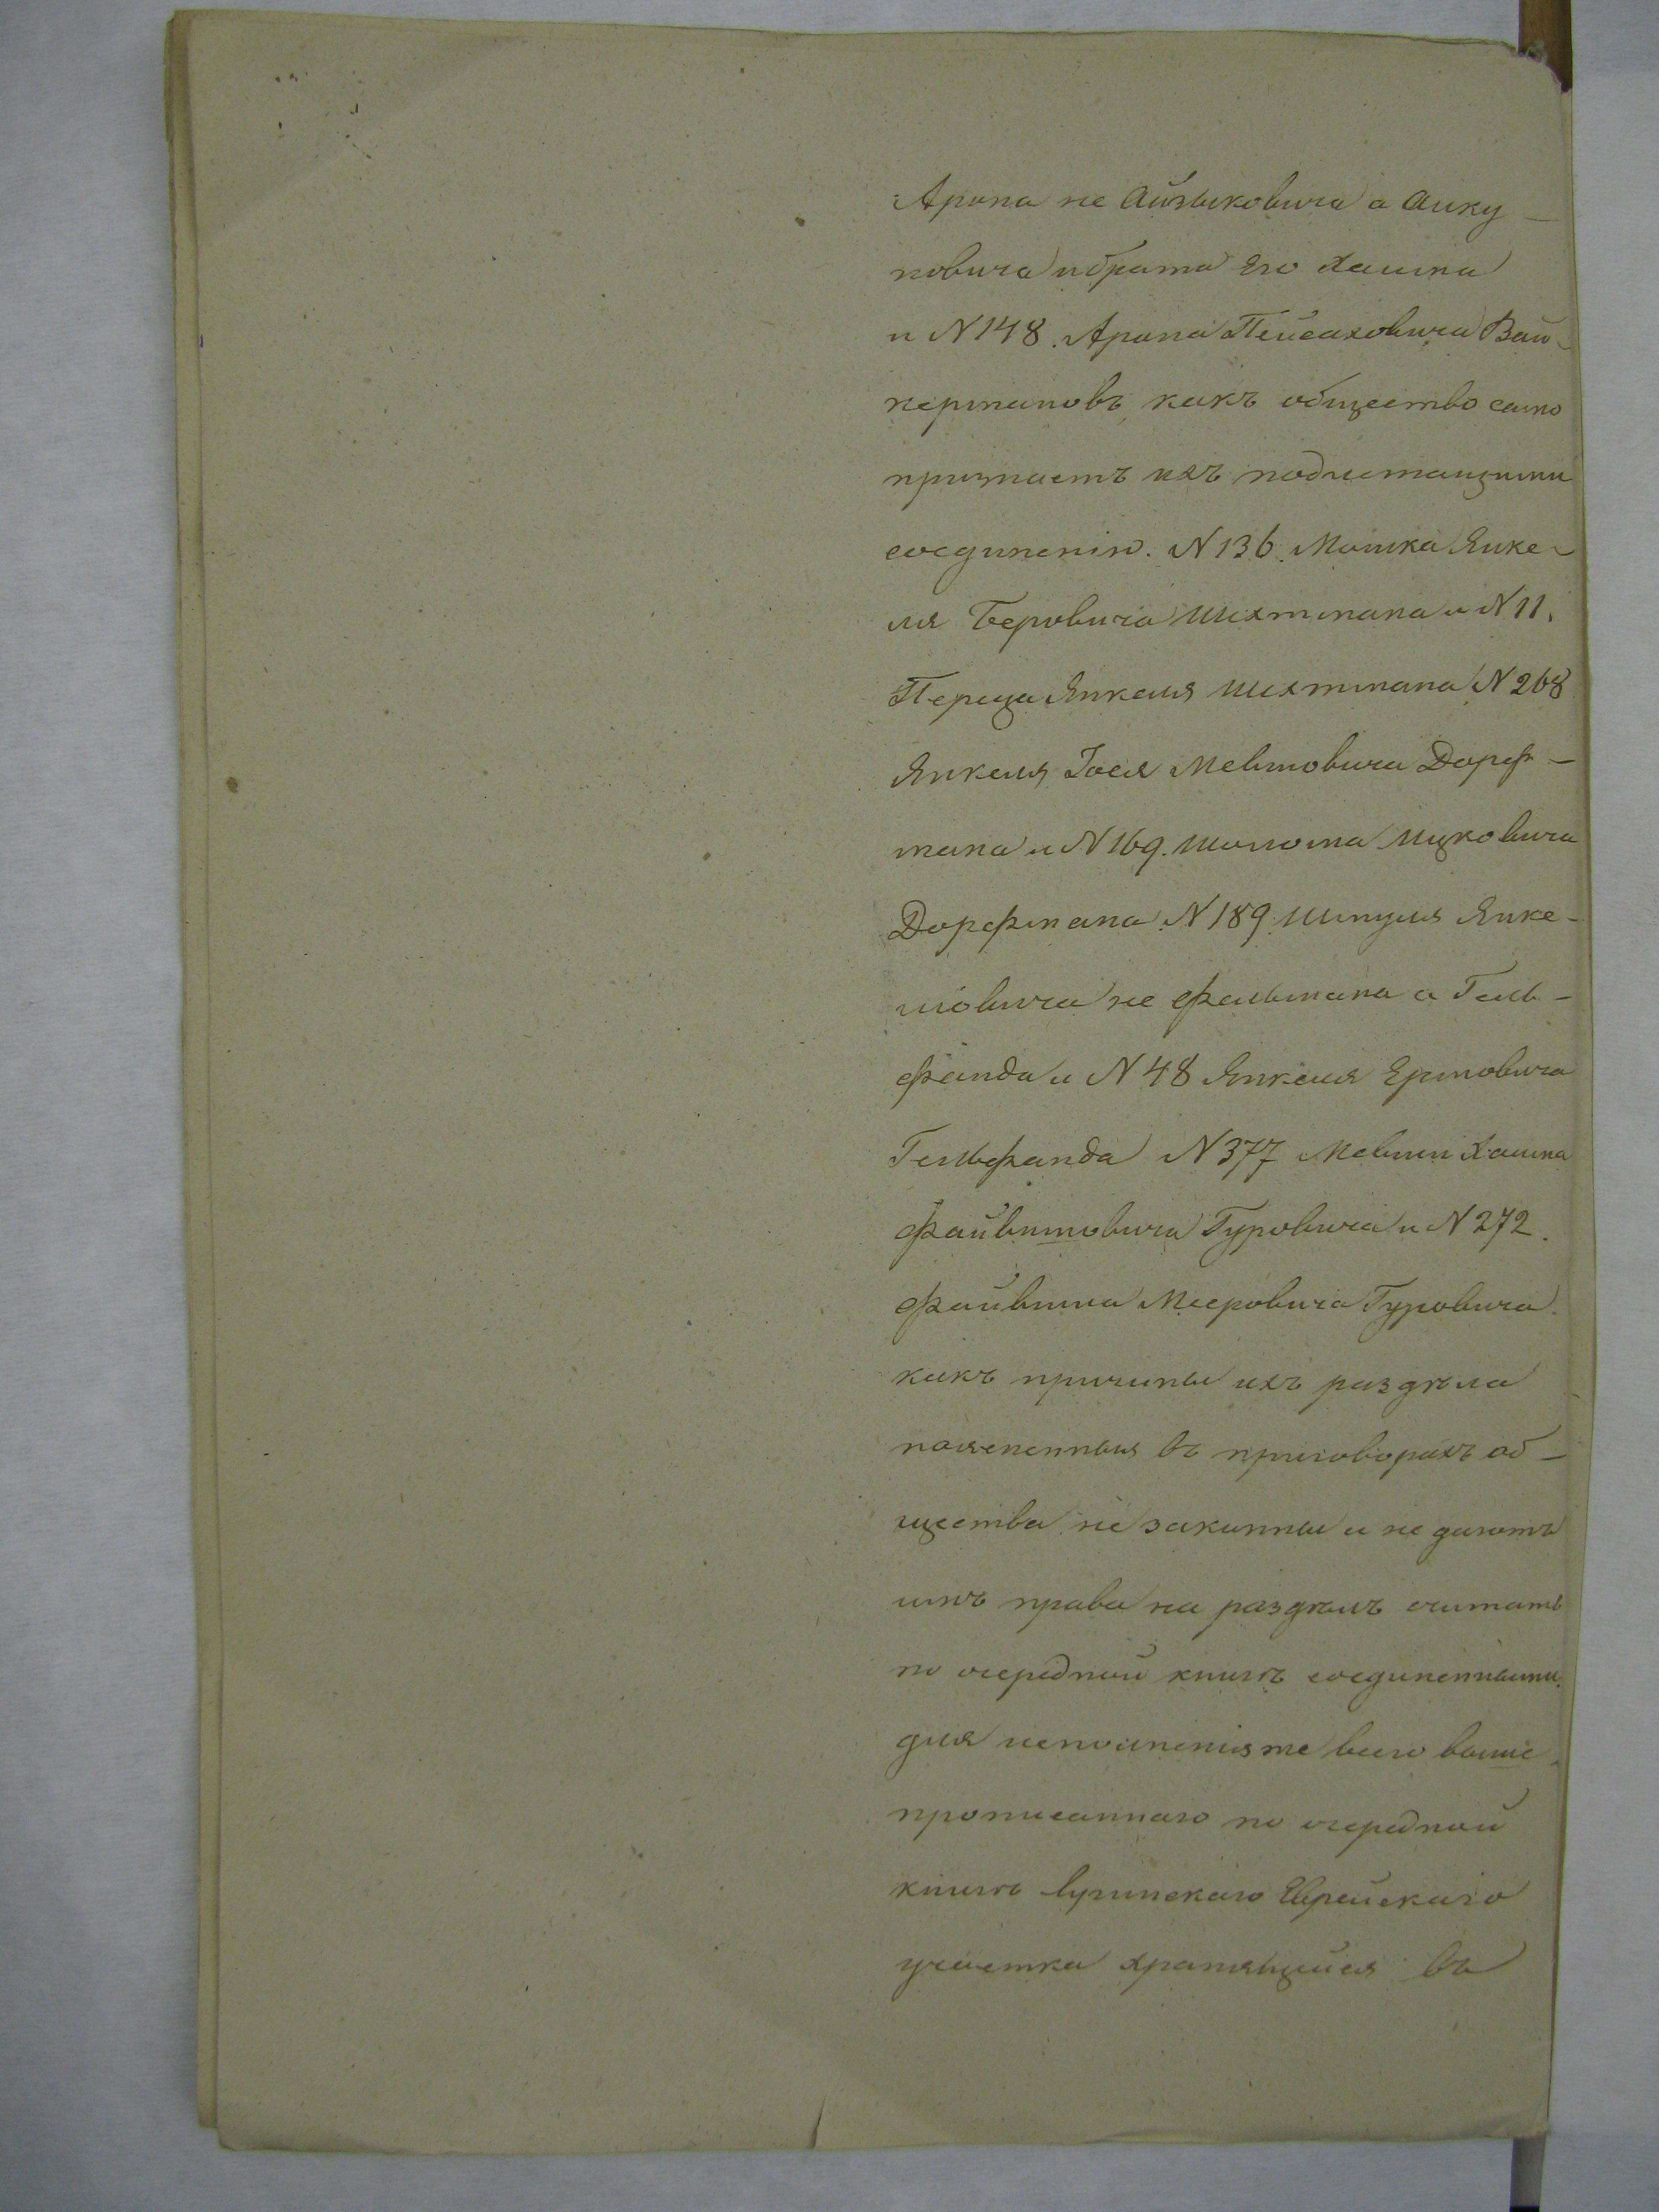 Арона не Айзиковича а Янку
новича и брата Его Хаима
и N 148. Арона Пейсаховича Вай
нермановъ, какъ общество само
признаетъ ихъ подлежащими
соединенію. N 136. Мошка Янке-
ля Беровича Шехтмана и N 11.
Переца Янкеля Шехтмана N 268
Янкеля Іося Мевшовича Дорф-
мана и N 169. Шолома Ицковича
Дорфмана. N 189. Шмуля Янке-
лювича не Фельмана а Гель-
фанда и N 48 Янкеля Ермовича
Гельфанда N 377 Мевши Хаима
Файвишовича Гуровича и N 272.
Файвиша Мееровича Гуровича.
какъ причины ихъ раздѣла
поясненныя въ приговорахъ об-
щества не законны и не даютъ
имъ права на раздѣлъ считать
по очередной книгѣ соединенными.
для исполненія же всего выше
прописаннаго по очередной
книгѣ Еврейскаго
участка хранящейся въ